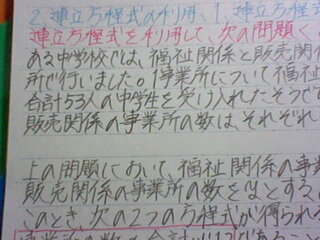 2.連立方程式の利用、1、連立方程
連立方程式を利用して、次の問題
ある中学校では、福祉関係と販売関
所で行いました。1事業所について福祉
合計53人の中学生を受け入れたそうで
販売関係の事業所の数は、それぞれ
上の問題において、福祉関係の事
販売関係の事業所の数をyとする
このとき、次の2つの方程式が得られ